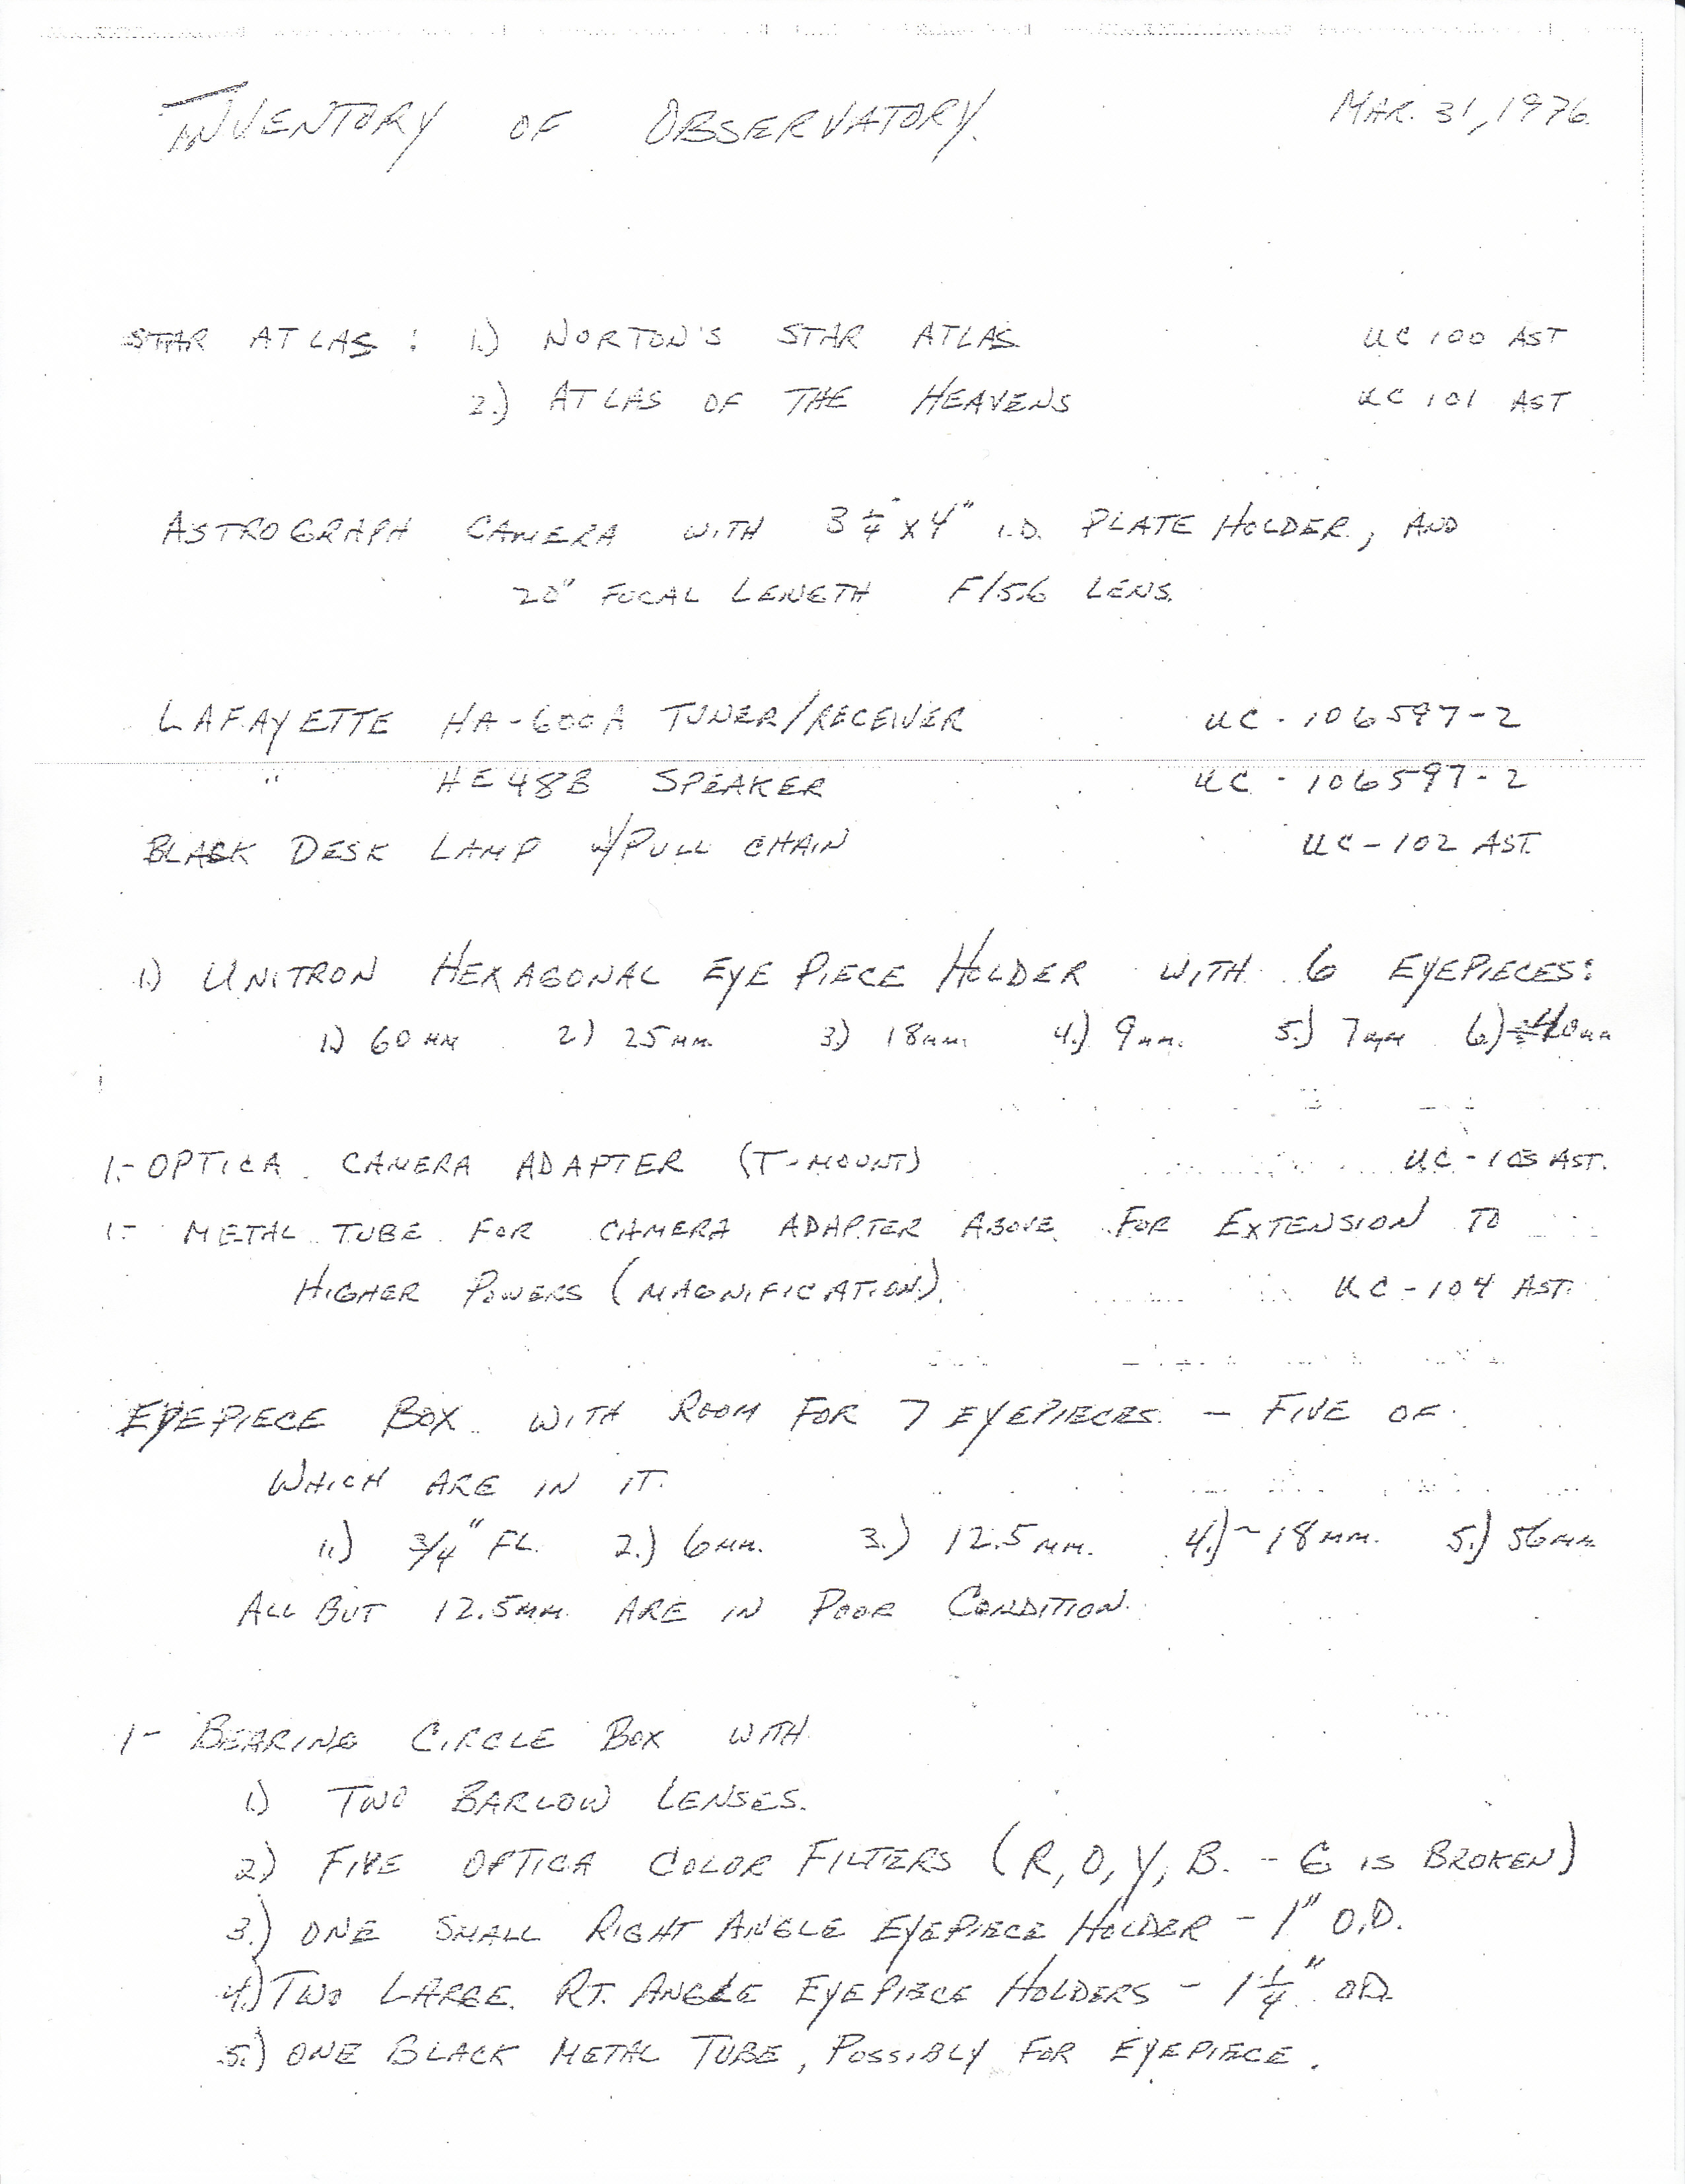 INVENTORY OF OBSERVATORY. MAR. 31, 1976.
STAR ATLAS: 1.) NORTON'S STAR ATLAS UC 100 AST
2.) ATLAS OF THE HEAVENS UC 101 AST
ASTROGRAPH CAMERA WITH 3 1/4 x 4" I.D. PLATE HOLDER, AND
20" FOCAL LENGTH F/5.6 LENS.
LAFAYETTE HA-600A TUNER/RECEIVER UC - 106597-2
" HE 48B SPEAKER UC - 106597-2
BLACK DESK LAMP W/PULL CHAIN UC - 102 AST.
1.) UNITRON HEXAGONAL EYE PIECE HOLDER WITH 6 EYEPIECES:
1.) 60 MM 2.) 25 MM. 3.) 18 MM. 4.) 9 MM. 5.) 7 MM 6.) 40 MM
1.- OPTICA CAMERA ADAPTER (T-MOUNT) UC - 103 AST.
1.- METAL TUBE FOR CAMERA ADAPTER ABOVE FOR EXTENSION TO
HIGHER POWERS (MAGNIFICATION). UC - 104 AST.
EYEPIECE BOX WITH ROOM FOR 7 EYEPIECES - FIVE OF
WHICH ARE IN IT.
1.) 3/4" FL. 2.) 6 MM. 3.) 12.5 MM. 4.) ~18 MM. 5.) 56 MM
ALL BUT 12.5 MM. ARE IN POOR CONDITION.
1- BEARING CIRCLE BOX WITH
1.) TWO BARLOW LENSES.
2.) FIVE OPTICA COLOR FILTERS (R, O, Y, B. - G IS BROKEN)
3.) ONE SMALL RIGHT ANGLE EYEPIECE HOLDER - 1" O.D.
4.) TWO LARGE RT. ANGLE EYEPIECE HOLDERS - 1 1/4" O.D.
5.) ONE BLACK METAL TUBE, POSSIBLY FOR EYEPIECE.